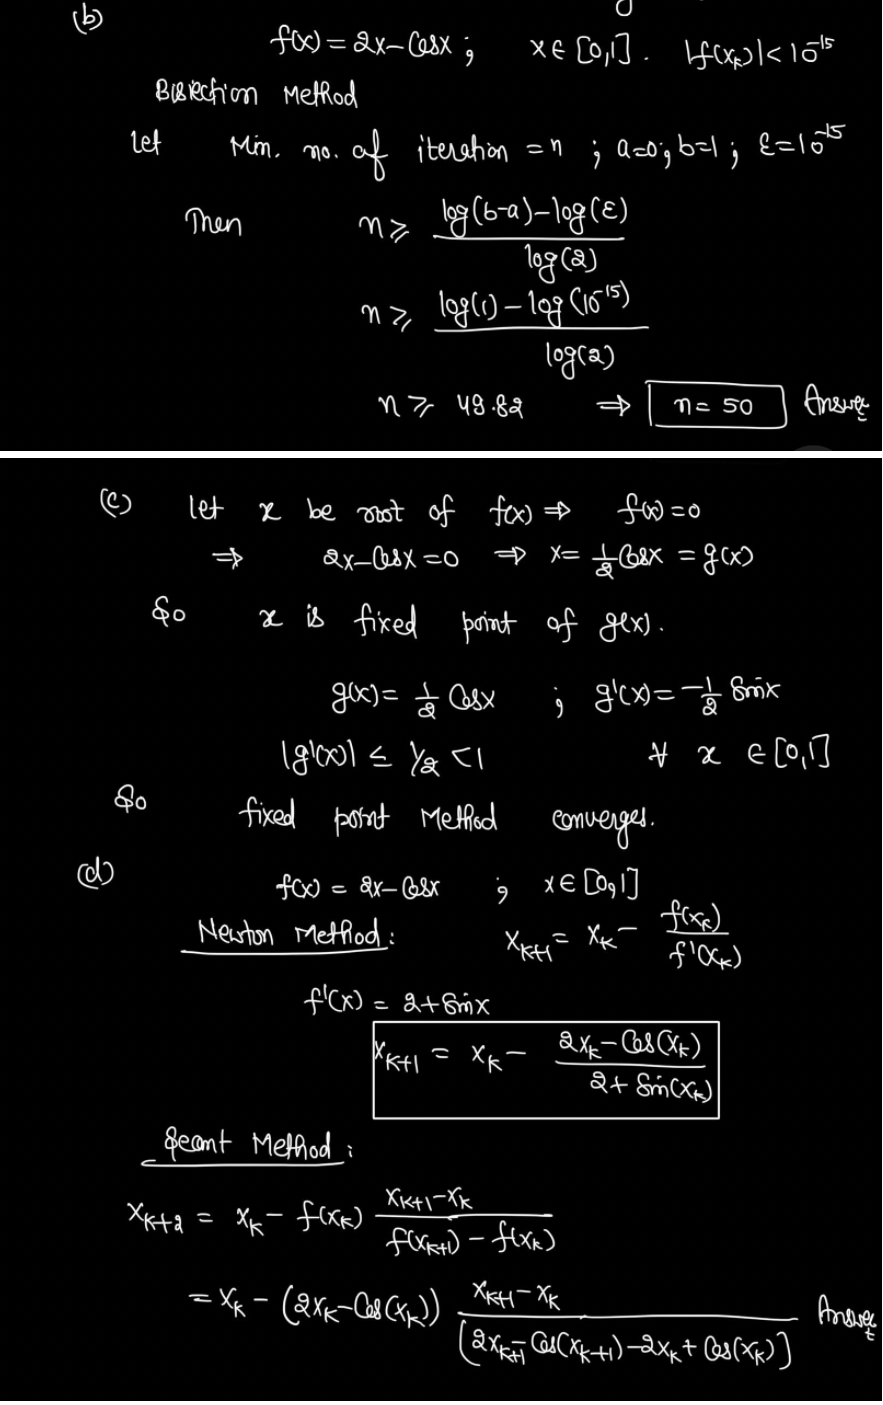 (b)
f(x) = 2x - Cosx ; x ∈ [0,1] . |f(x_k)| < 10^-15
Bisection Method
let Min. no. of iteration = n ; a=0, b=1 ; ε = 10^-15
Then n ≥ (log(b-a) - log(ε)) / log(2)
n ≥ (log(1) - log(10^-15)) / log(2)
n ≥ 49.82 ⇒ n = 50 Answer
(c) let x be root of f(x) ⇒ f(x) = 0
⇒ 2x - Cosx = 0 ⇒ x = 1/2 Cosx = g(x)
So x is fixed point of g(x).
g(x) = 1/2 Cosx ; g'(x) = -1/2 Sinx
|g'(x)| ≤ 1/2 < 1 ∀ x ∈ [0,1]
So fixed point Method converges.
(d) f(x) = 2x - Cosx ; x ∈ [0,1]
Newton Method : x_{k+1} = x_k - f(x_k) / f'(x_k)
f'(x) = 2 + Sinx
x_{k+1} = x_k - (2x_k - Cos(x_k)) / (2 + Sin(x_k))
Secant Method :
x_{k+2} = x_k - f(x_k) (x_{k+1} - x_k) / (f(x_{k+1}) - f(x_k))
= x_k - (2x_k - Cos(x_k)) (x_{k+1} - x_k) / [2x_{k+1} - Cos(x_{k+1}) - 2x_k + Cos(x_k)] Answer